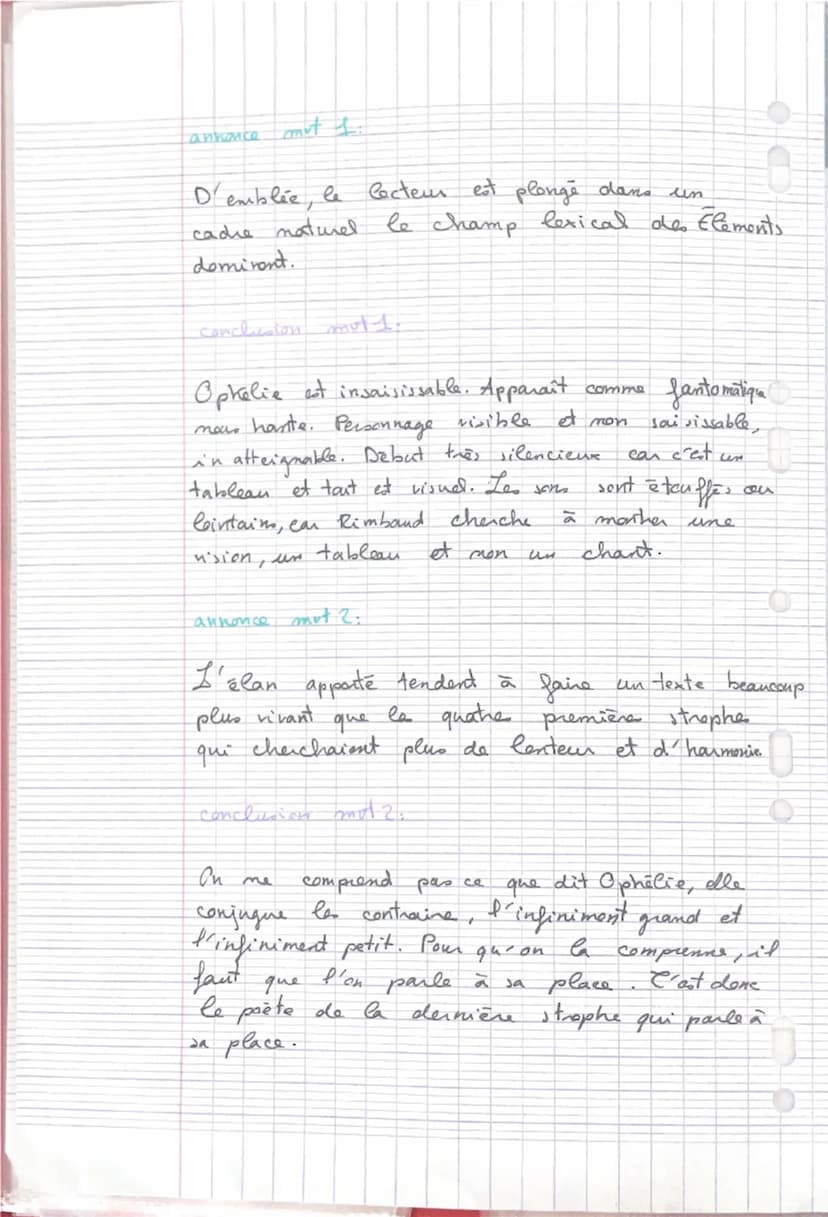 annonce mvt 1:
D'emblée, le lecteur est plongé dans un
cadre naturel le champ lexical des Éléments
dominent.
conclusion mvt 1:
Ophélie est insaisissable. Apparaît comme fantomatique
nous hante. Personnage visible et non saisissable,
inatteignable. Debut très silencieux car c'est un
tableau et tout est visuel. Les sons sont étouffés ou
lointains, car Rimbaud cherche à montrer une
vision, un tableau et non un chant.
annonce mvt 2:
L'élan apporté tendent à faire un texte beaucoup
plus vivant que les quatre première strophe
qui cherchaient plus de lenteur et d'harmonie.
conclusion mvt 2:
On ne comprend pas ce que dit Ophélie, elle
conjugue les contraire, l'infiniment grand et
l'infiniment petit. Pour qu'on la comprenne, il
faut que l'on parle à sa place. C'est donc
le poète de la dernière strophe qui parle à
sa place.